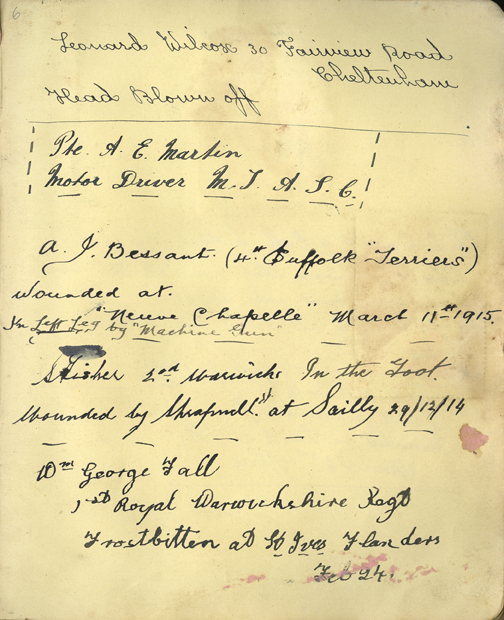 6
Leonard Wilcox 30 Fairview Road
Cheltenham
Head Blown off
Pte. A. E. Martin
Motor Driver M. T. A. S. C.
A. J. Bessant. (4th Suffolk "Terriers")
Wounded at.
"Neuve Chapelle" March 11th 1915.
In Left Leg by "Machine Gun"
S Fisher 2nd Warwicks In the Foot.
Wounded by Shrapnell. at Sailly 29/12/14
Wm George Fall
1st Royal Warwickshire Regt
Frostbitten at St Ives Flanders
Feb 24.